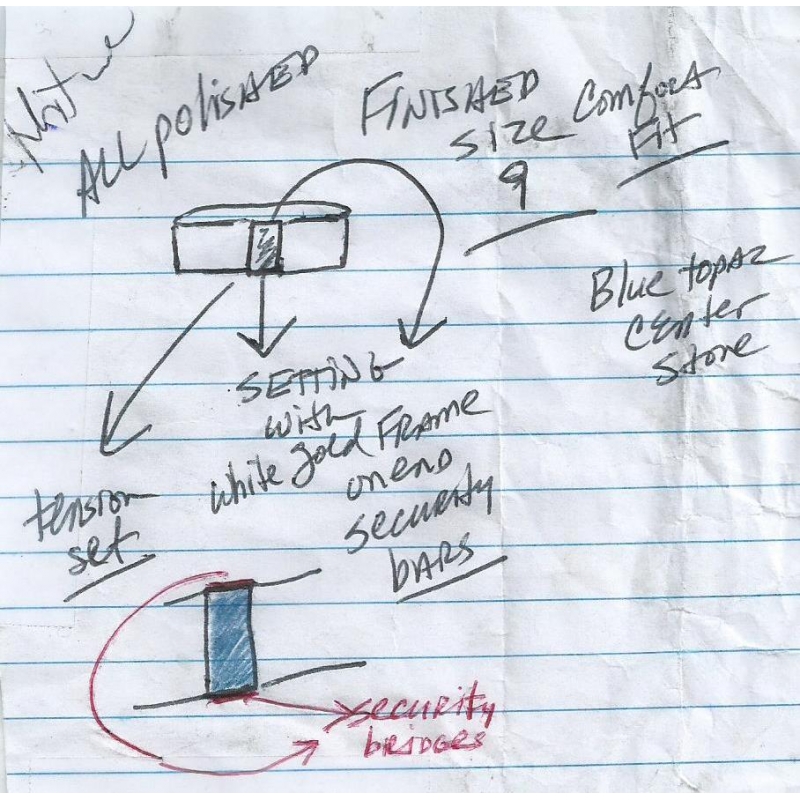 ALL polisHED
FINISHED
SIZE
9
Comfort
Fit
Blue topaz
CENter
Stone
SETTING
with
white gold FRAME
on end
security
bARS
tension
set
security
bRIDGES